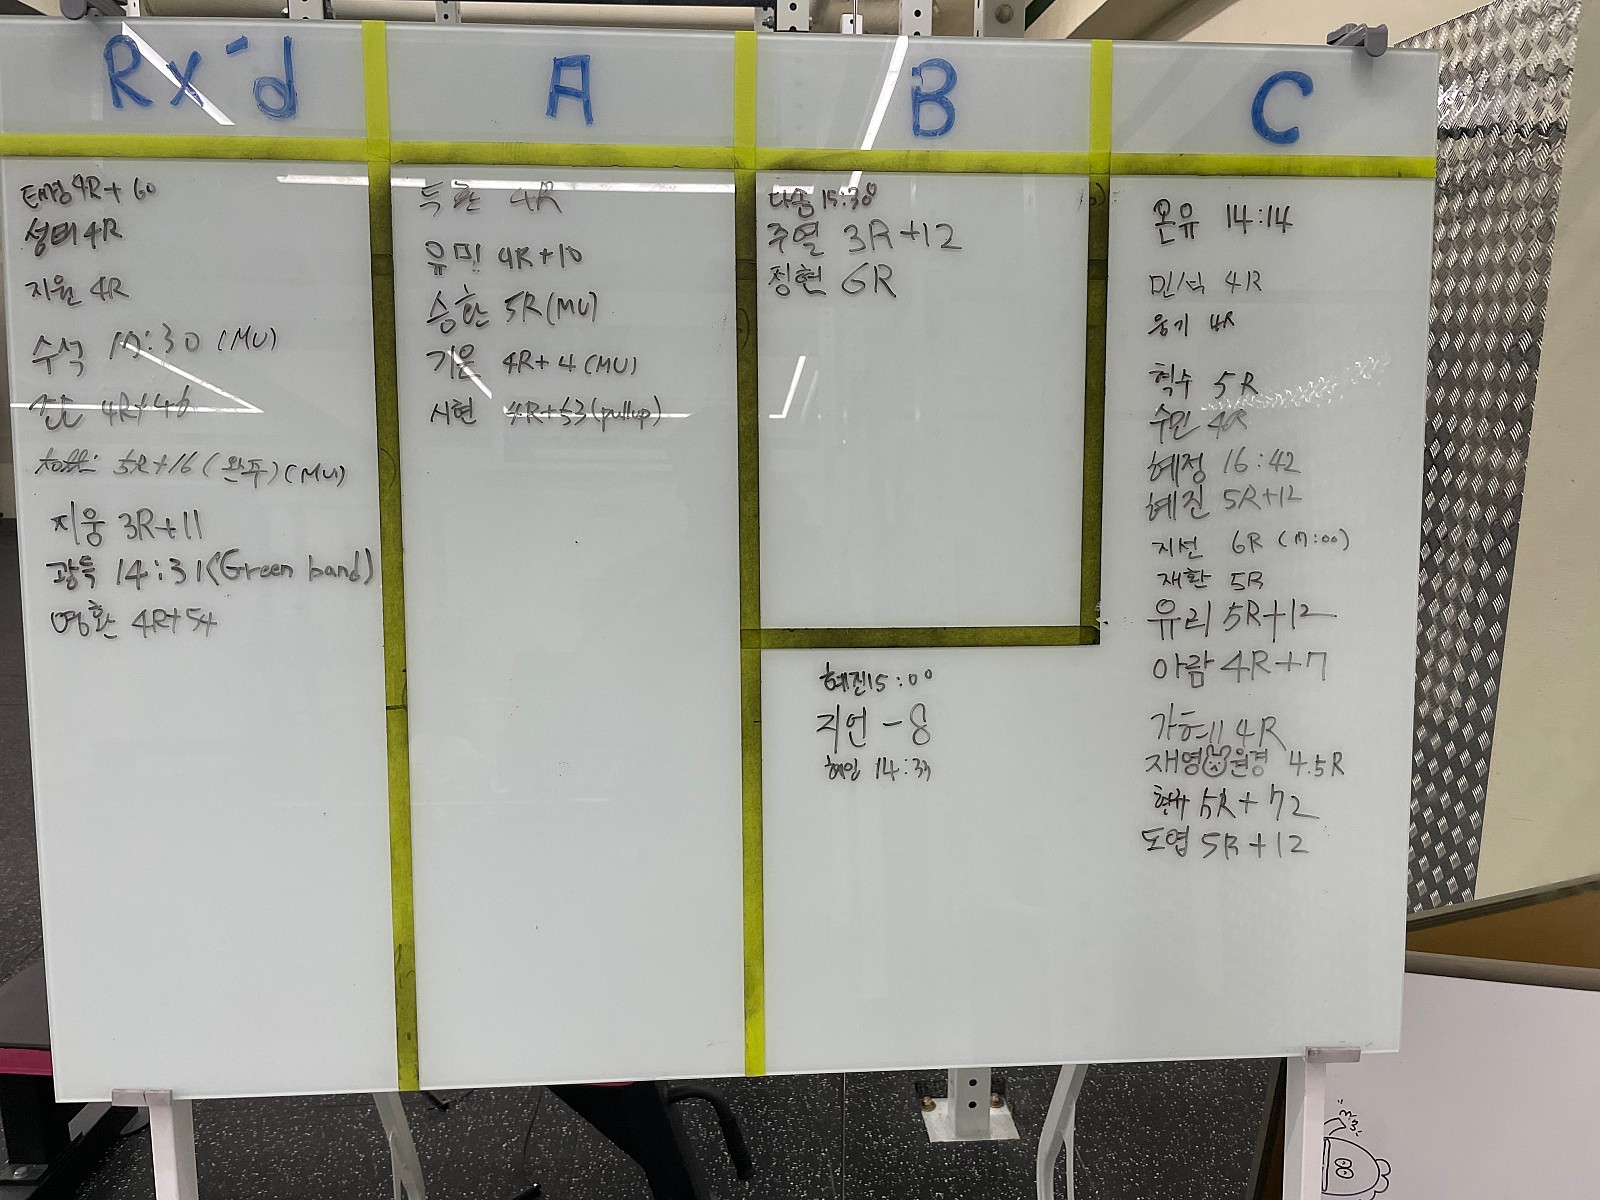 Rx'd
태경 4R+60
성태 4R
지원 4R
수석 17:30 (MU)
4R+46
5R+16 (완주) (MU)
지웅 3R+11
광득 14:31 (Green band)
영환 4R+54
A
득환 4R
유민 4R+10
승환 5R (MU)
기운 4R+4 (MU)
시현 4R+53 (pullup)
B
다솜 15:38
주열 3R+12
정현 6R
혜진 15:00
지언 -8
혜임 14:33
C
온유 14:14
민석 4R
웅기 4R
혁수 5R
수민 4R
혜정 16:42
혜진 5R+12
지선 6R (17:00)
재환 5R
유리 5R+12
아람 4R+7
가혜 4R
재영 원경 4.5R
현규 5R+72
도엽 5R+12